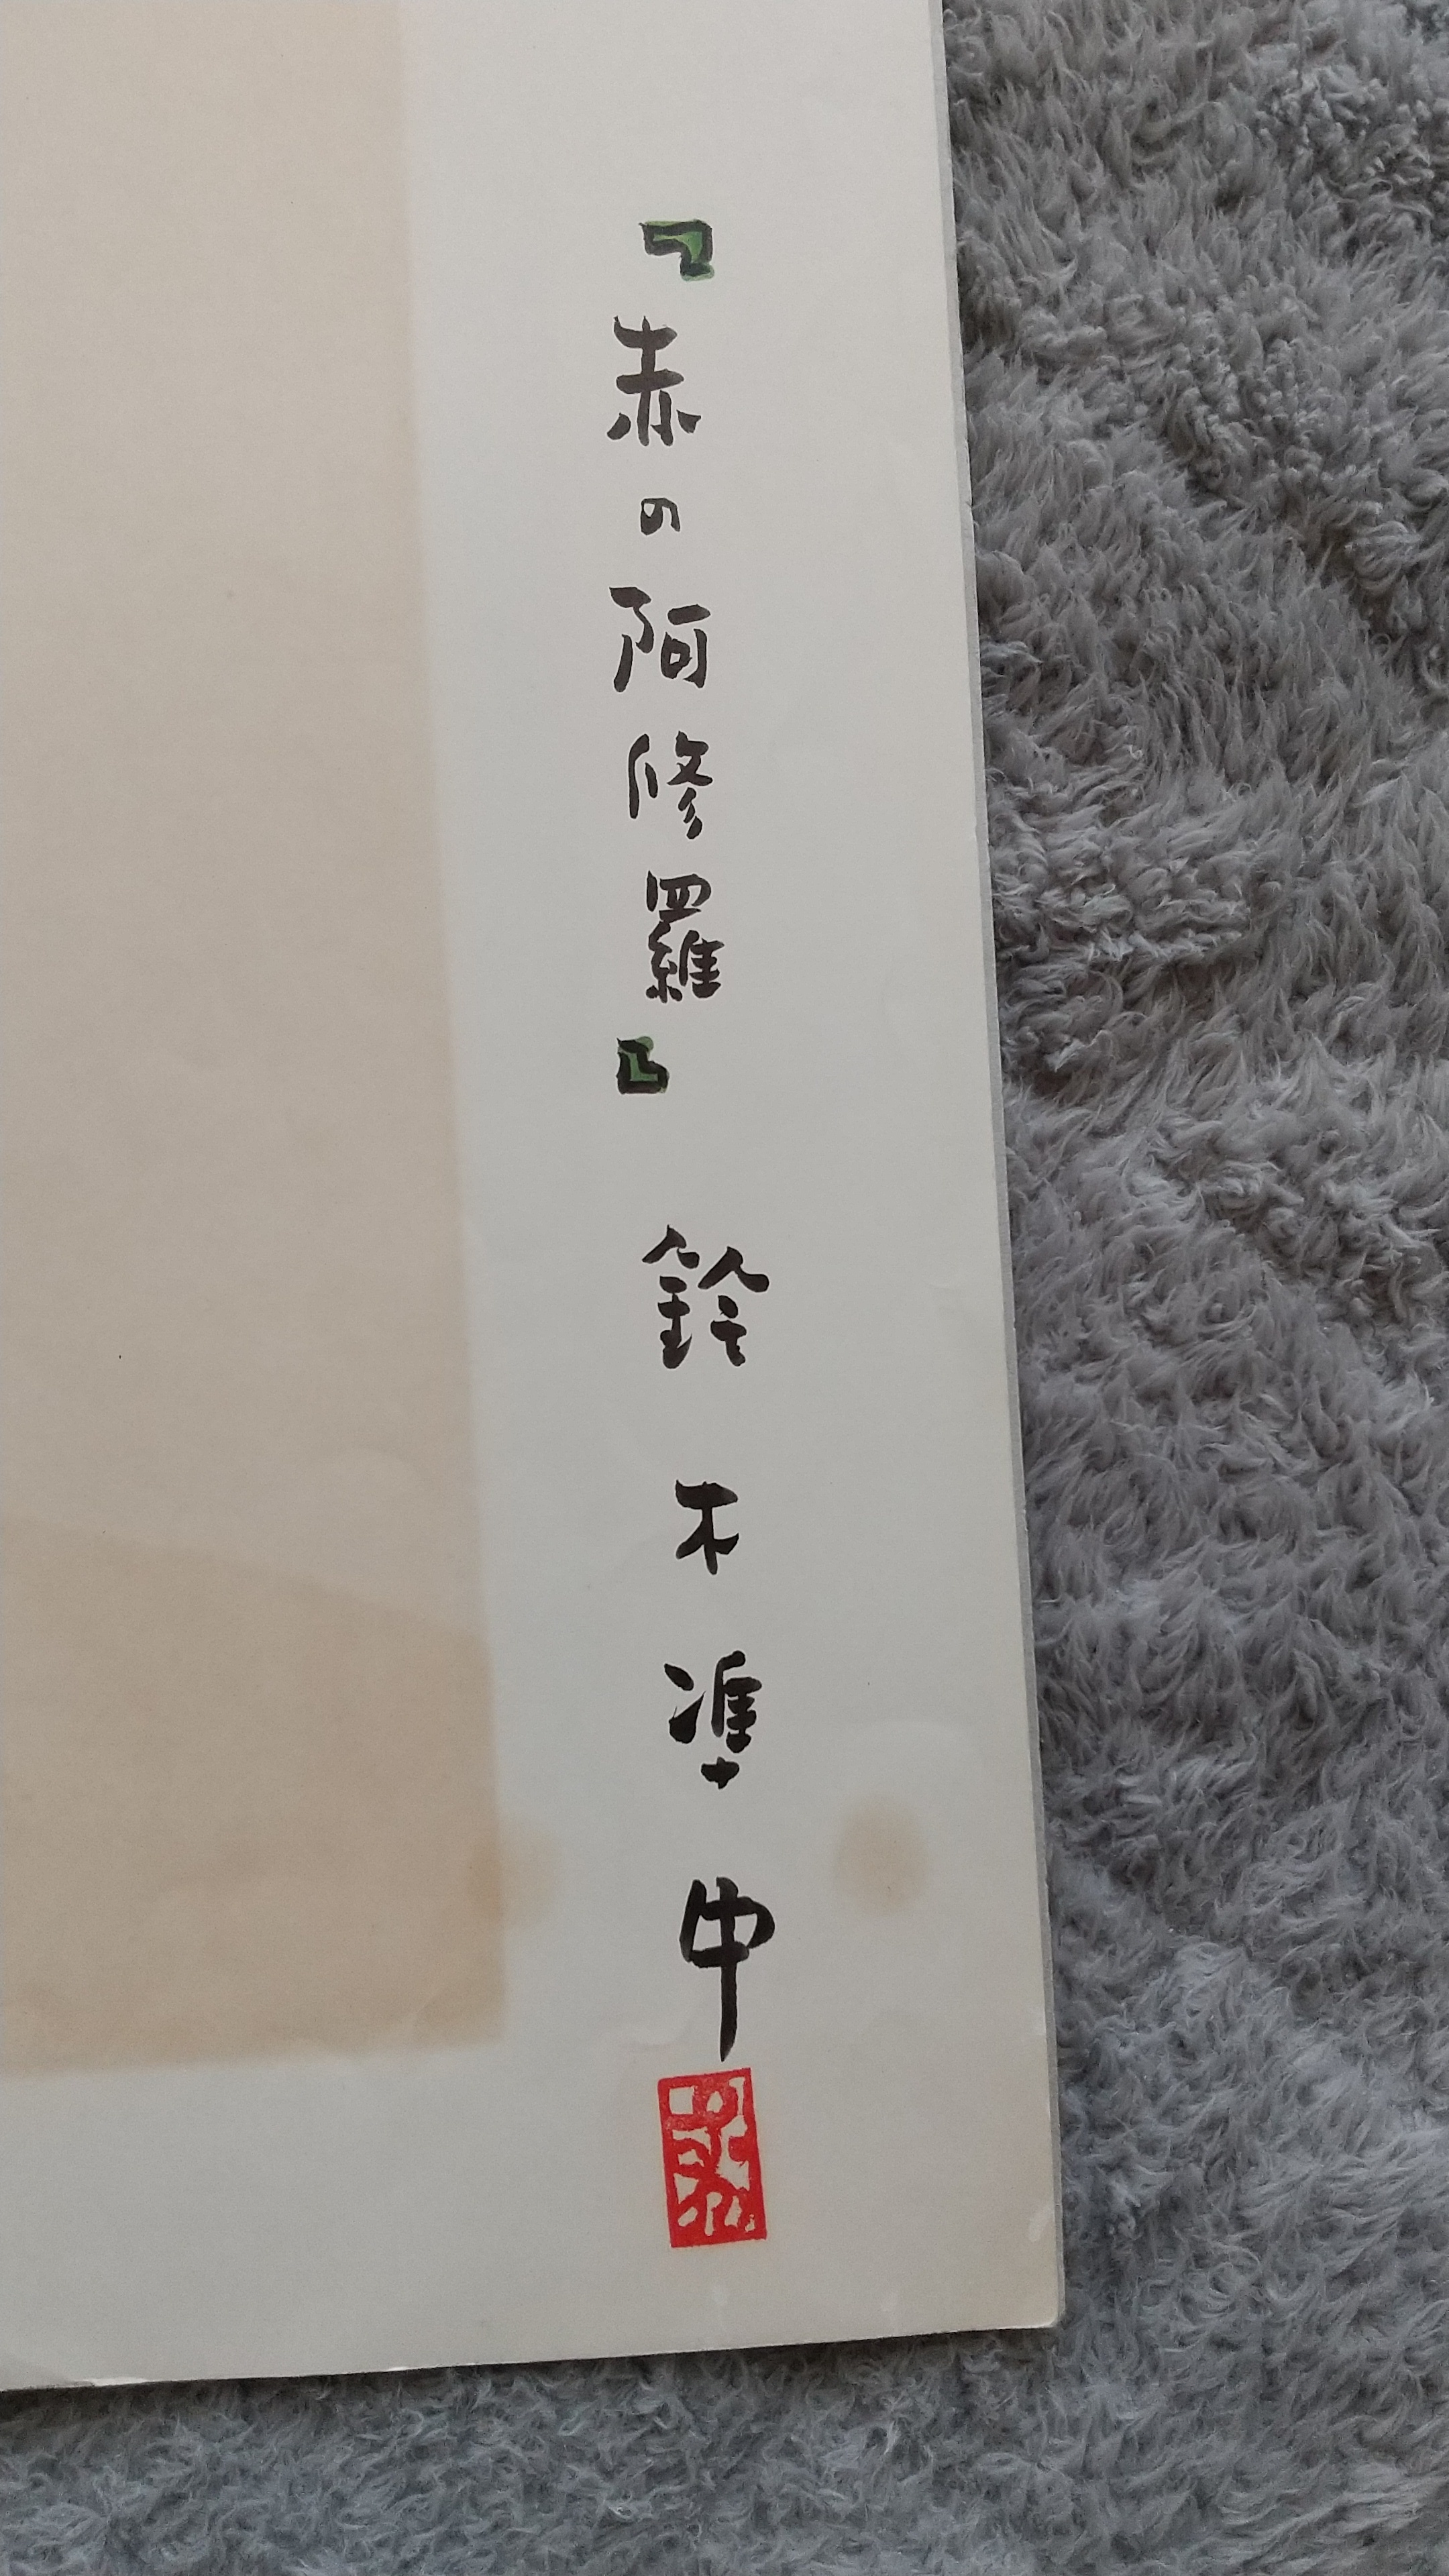 『赤の阿修羅』 鈴木凖中